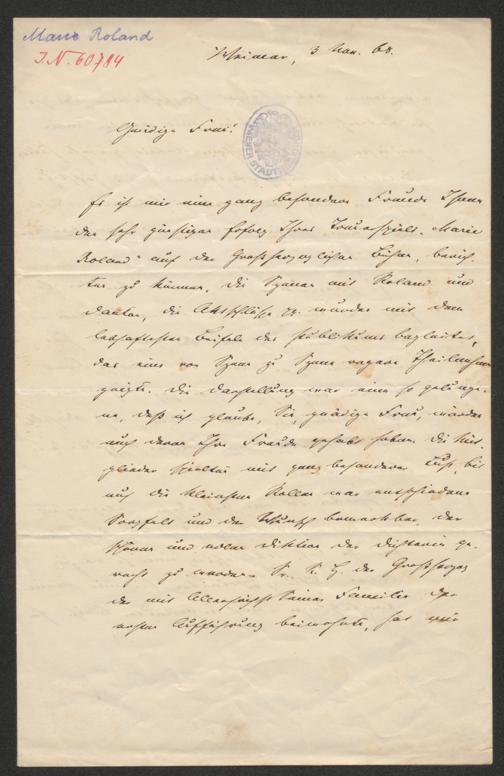 Marie Roland
I.N. 60784
Weimar, 3 Nov. 68.
Gnädige Frau!
Es ist mir eine ganz besondere Freude Ihnen
den sehr günstigen Erfolg Ihres Trauerspiels „Marie
Roland“ auf der Großherzoglichen Bühne, berich-
ten zu können. Die Szenen mit Roland und
Danton, die Aktschlüße pp. wurden mit dem
lebhaftesten Beifall des Publikums begleitet,
das eine von Szene zu Szene regere Theilnahme
zeigte. Die Darstellung war eine so gelunge-
ne, daß ich glaube, Sie, gnädige Frau, würden
auch daran Ihre Freude gehabt haben. Die Mit-
glieder spielten mit ganz besonderer Lust, bis
auf die kleinsten Rollen war entschiedene
Sorgfalt und der Wunsch bemerkbar, der
schönen und edlen Diktion der Dichterin ge-
recht zu werden. Sr. K. H. der Großherzog
der mit Allerhöchst Seiner Familie der
ersten Aufführung beiwohnte, hat mir